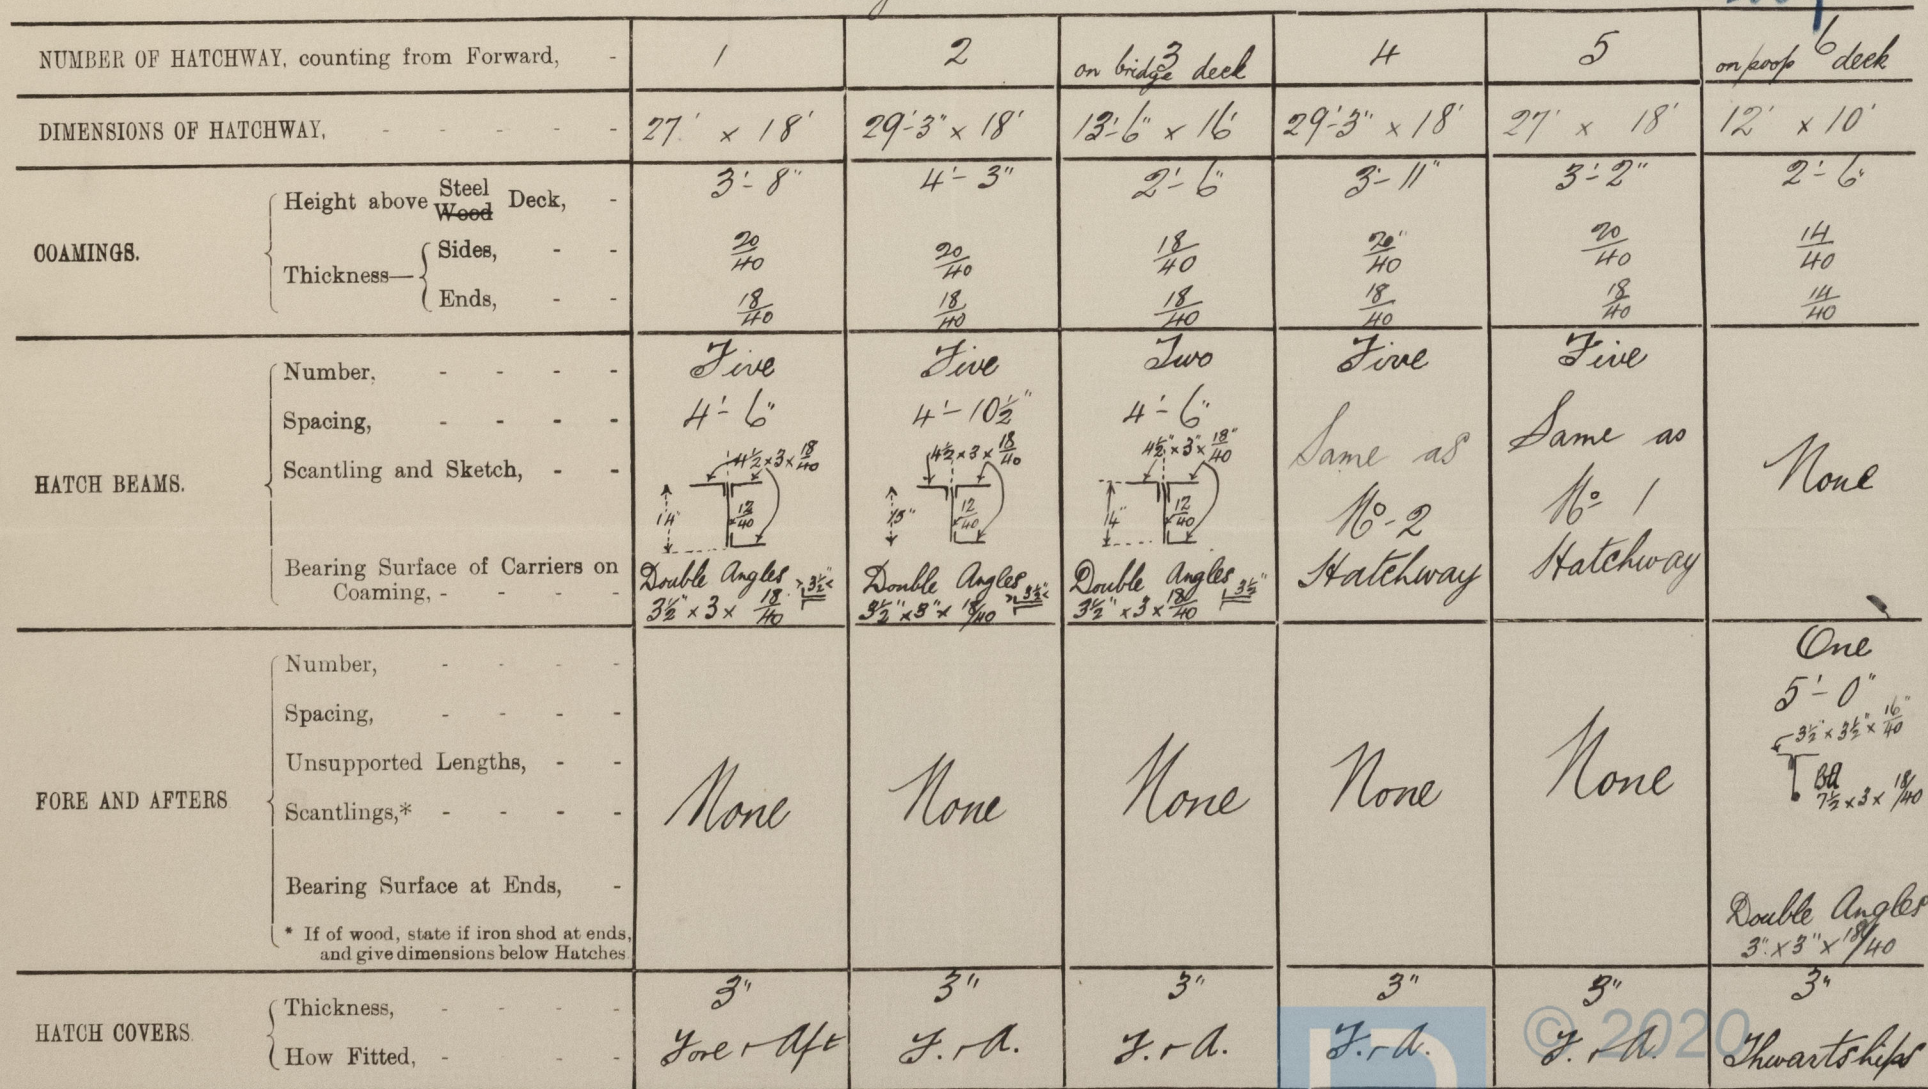 NUMBER OF HATCHWAY, counting from Forward, - 1 2 3 on bridge deck 4 5 6 on poop deck
DIMENSIONS OF HATCHWAY, - - - - - 27' x 18' 29'-3" x 18' 13'-6" x 16' 29'-3" x 18' 27' x 18' 12' x 10'
COAMINGS. Height above Steel Wood Deck, - 3'-8" 4'-3" 2'-6" 3'-11" 3'-2" 2'-6"
Thickness— Sides, - - 20/40 20/40 18/40 20/40 20/40 14/40
Ends, - - 18/40 18/40 18/40 18/40 18/40 14/40
HATCH BEAMS. Number, - - - - Five Five Two Five Five None
Spacing, - - - - 4'-6" 4'-10½" 4'-6" Same as No-2 Hatchway Same as No- 1 Hatchway
Scantling and Sketch, - - 4½ x 3 x 18/40 14" 12/40 4½ x 3 x 18/40 15" 12/40 4½" x 3" x 18"/40 14" 12/40
Bearing Surface of Carriers on Coaming, - - - - Double Angles 3½" x 3 x 18/40 3½" Double Angles 3½" x 3" x 18/40 3½" Double Angles 3½" x 3 x 18/40 3½"
FORE AND AFTERS Number, - - - - None None None None None One
Spacing, - - - - 5'-0"
Unsupported Lengths, - -
Scantlings,* - - - - 3½" x 3½" x 16"/40 7½ x 3 x 18/40
Bearing Surface at Ends, - Double Angles 3" x 3" x 18/40
* If of wood, state if iron shod at ends,
and give dimensions below Hatches
HATCH COVERS Thickness, - - - - 3" 3" 3" 3" 3" 3"
How Fitted, - - - - Fore & Aft F. & A. F. & A. F. & A. F. & A. Thwartships
© 2020